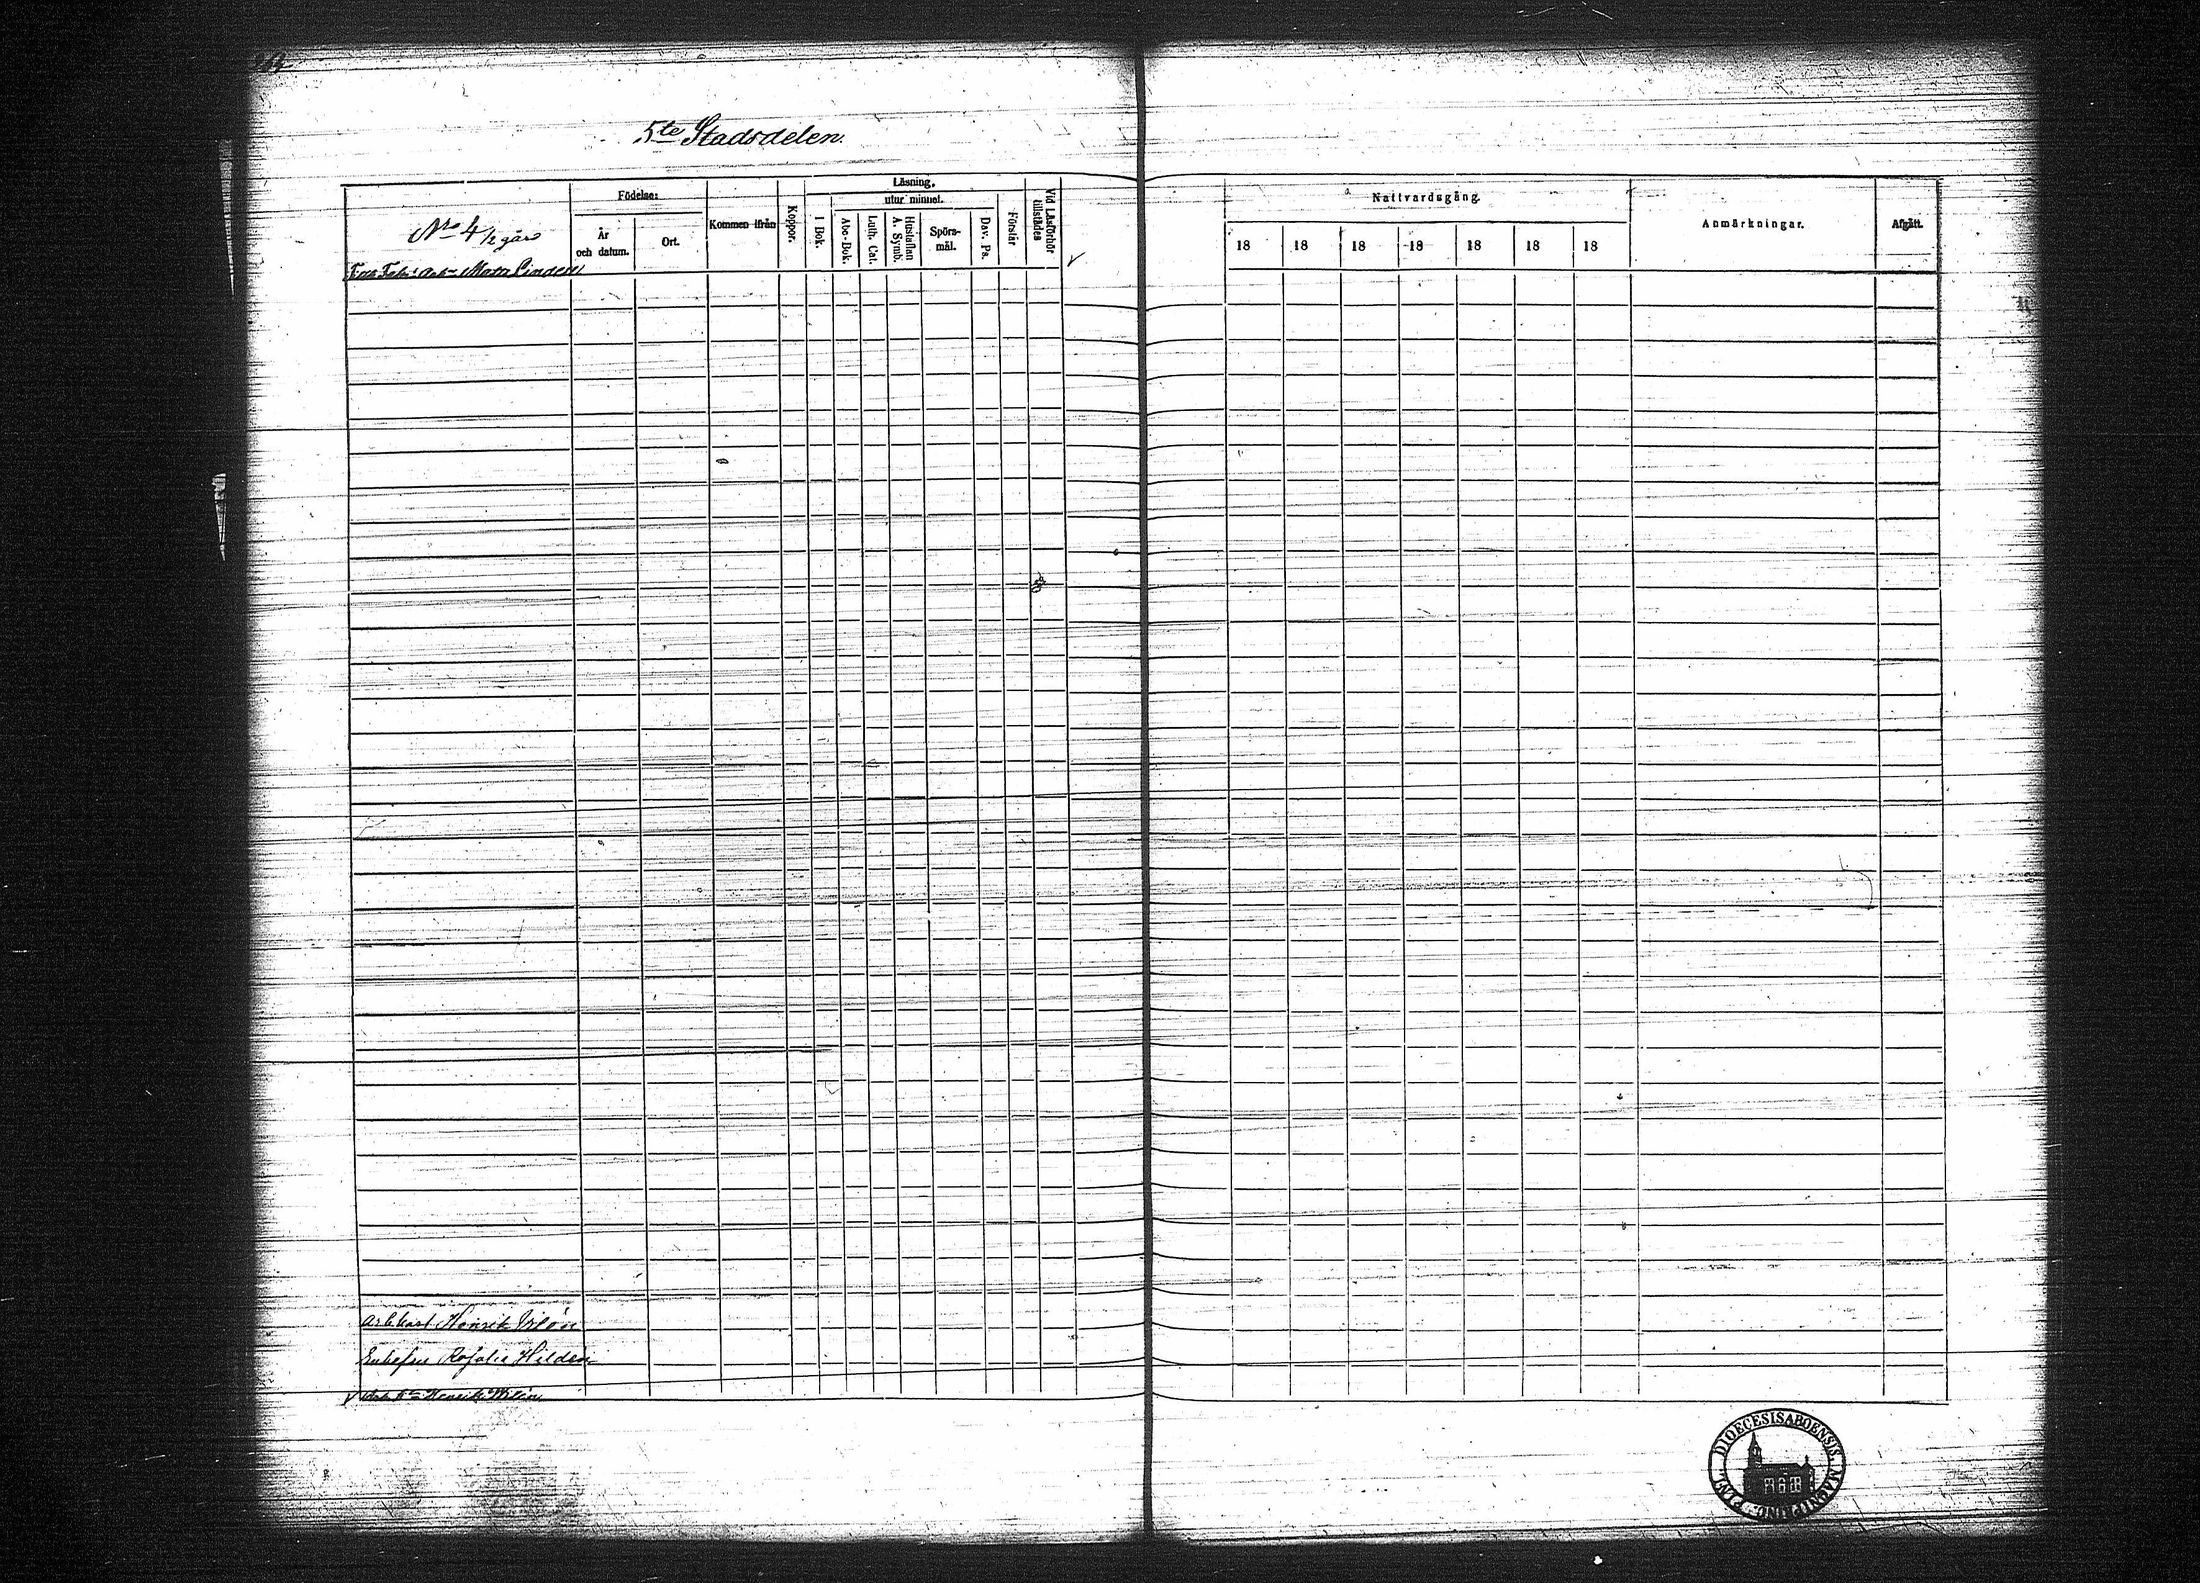 5te Stadsdelen.
No 4 1/2 gård
Födelse:
År och datum.
Ort.
Kommen ifrån
Koppor.
Läsning,
utur minnet.
I Bok.
Abc-Bok.
Luth. Cat.
Hustaflan A. Symb.
Spörsmål.
Dav. Ps.
Förstår
Vid Läsförhör tillstädes
Nattvardsgång.
18 18 18 18 18 18 18
Anmärkningar.
Afgått.
Mats Linden
Henrik Wilén
Enkefru Rosalie Hilden
Henrik Wilén
DIOECESIS ABOENSIS